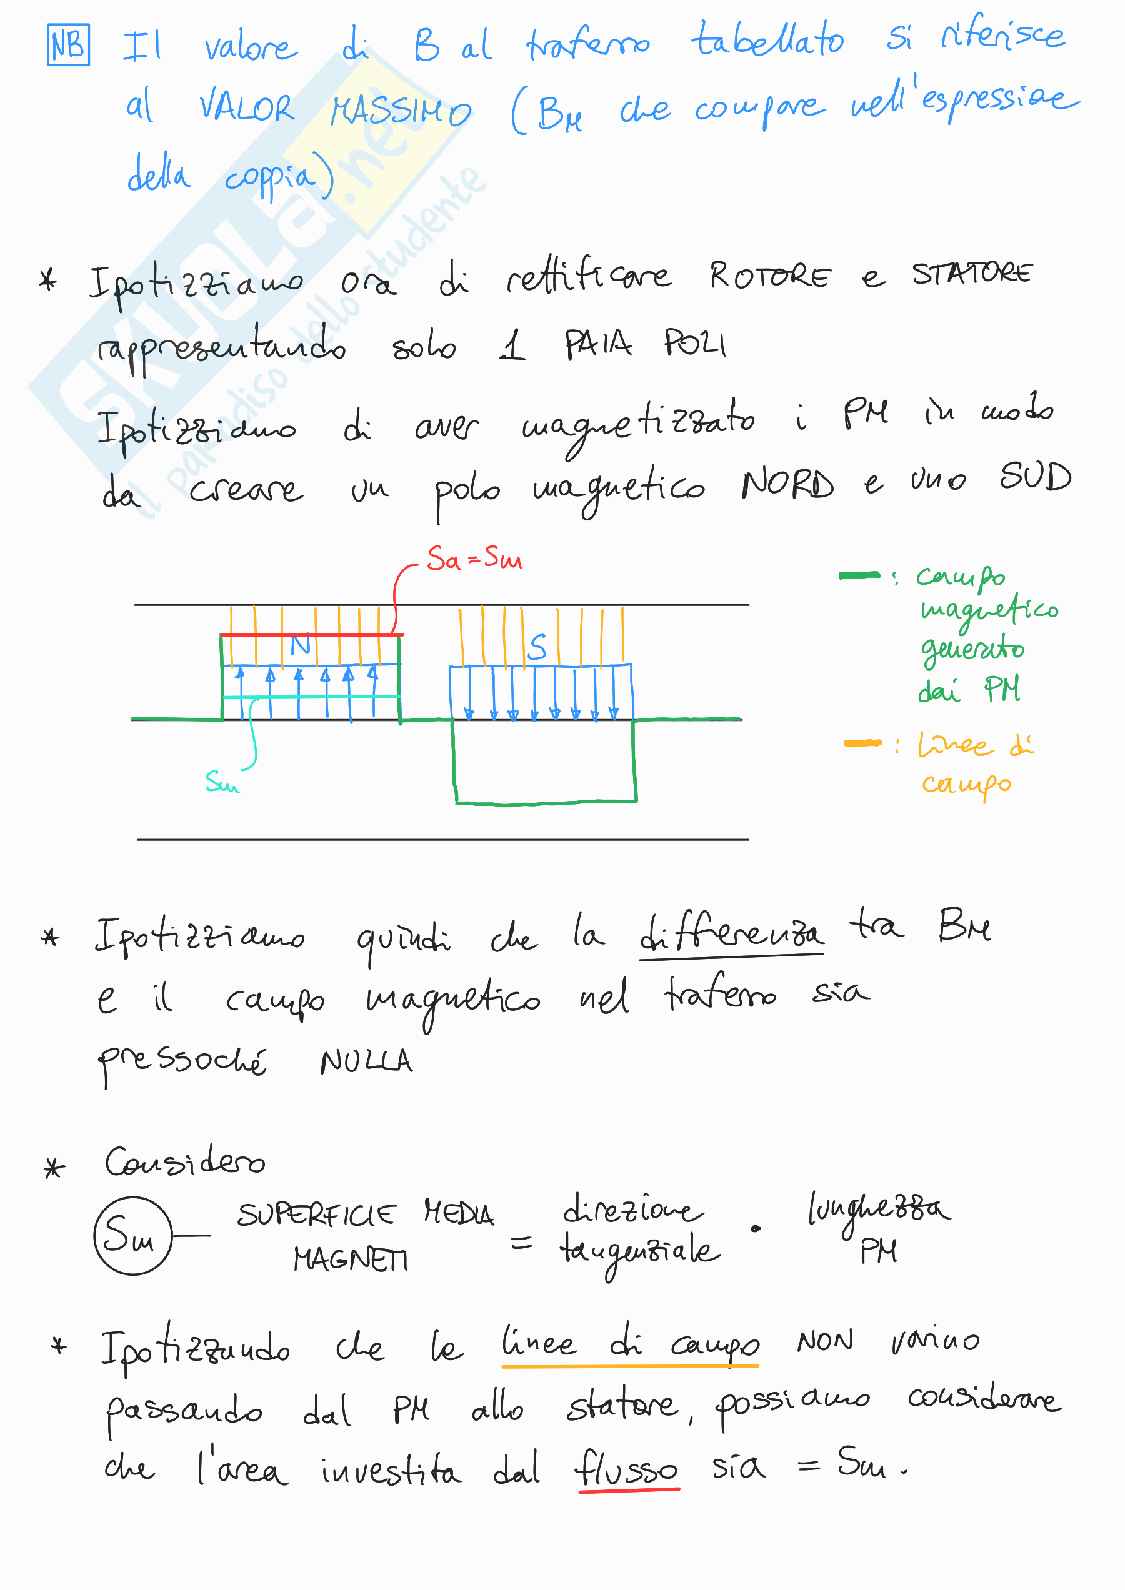 NB Il valore di B al traferro tabellato si riferisce
al VALOR MASSIMO (BM che compare nell'espressione
della coppia)
SKUOLA.net
il paradiso dello studente
* Ipotizziamo ora di rettificare ROTORE e STATORE
rappresentando solo 1 PAIA POLI
Ipotizziamo di aver magnetizzato i PM in modo
da creare un polo magnetico NORD e uno SUD
Sa = Sm
N
S
Sm
: campo
magnetico
generato
dai PM
: linee di
campo
* Ipotizziamo quindi che la differenza tra BM
e il campo magnetico nel traferro sia
pressoché NULLA
* Considero
Sm SUPERFICIE MEDIA MAGNETI = direzione tangenziale · lunghezza PM
* Ipotizzando che le linee di campo NON varino
passando dal PM allo statore, possiamo considerare
che l'area investita dal flusso sia = Sm.